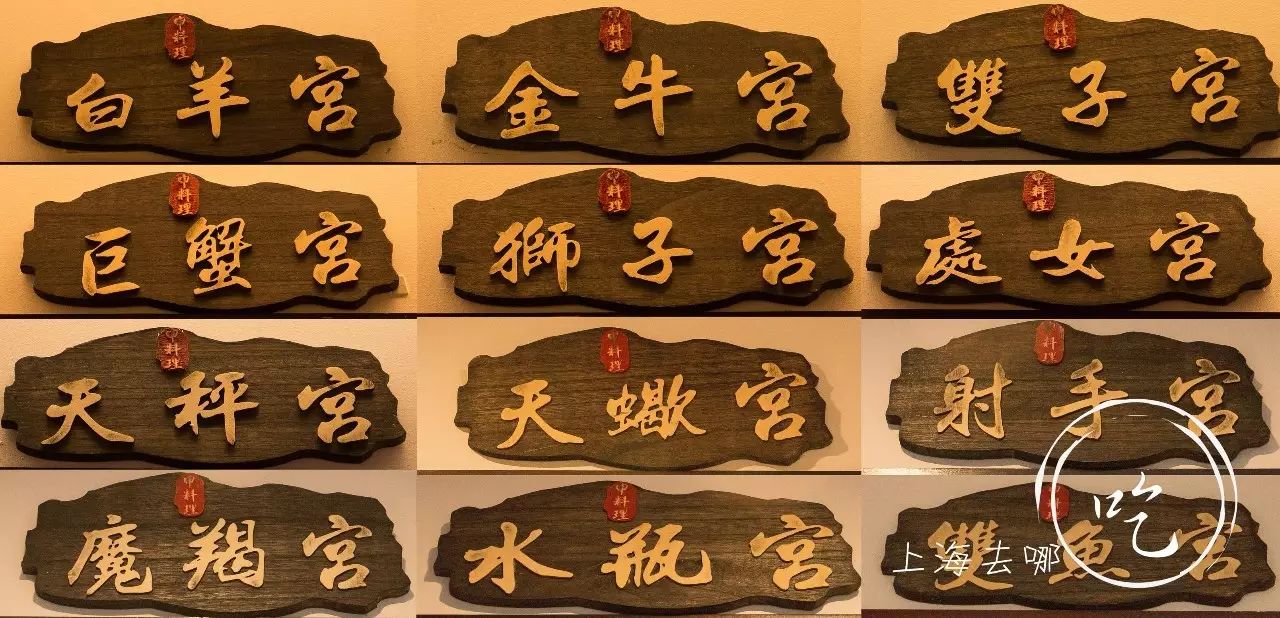 料理
白羊宮
料理
金牛宮
料理
雙子宮
料理
巨蟹宮
料理
獅子宮
料理
處女宮
料理
天秤宮
料理
天蠍宮
料理
射手宮
料理
魔羯宮
料理
水瓶宮
料理
雙魚宮
上海去哪吃